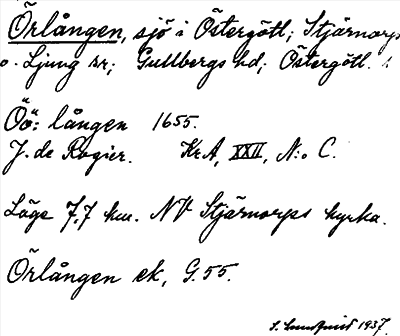 Örlången, sjö i Östergötl; Stjärnorps
o. Ljung sr; Gullbergs hd; Östergötl. l
Öö: lången 1655.
J. de Rogier. KrA, XXII, N:o C.
Läge 7,7 km. NV Stjärnorps kyrka.
Örlången ek, G.55.
S. Lundquist 1937.